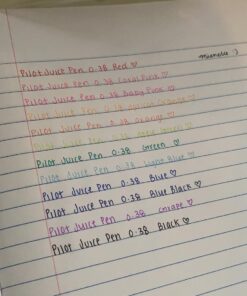 Pilot Juice Pen 0.38 Red ♡
Pilot Juice Pen 0.38 Coral Pink ♡
Pilot Juice Pen 0.38 Baby Pink ♡
Pilot Juice Pen 0.38 Apricot Orange ♡
Pilot Juice Pen 0.38 Orange ♡
Pilot Juice Pen 0.38 Green ♡
Pilot Juice Pen 0.38 Green ♡
Pilot Juice Pen 0.38 Blue ♡
Pilot Juice Pen 0.38 Blue ♡
Pilot Juice Pen 0.38 Blue Black ♡
Pilot Juice Pen 0.38 Grape ♡
Pilot Juice Pen 0.38 Black ♡